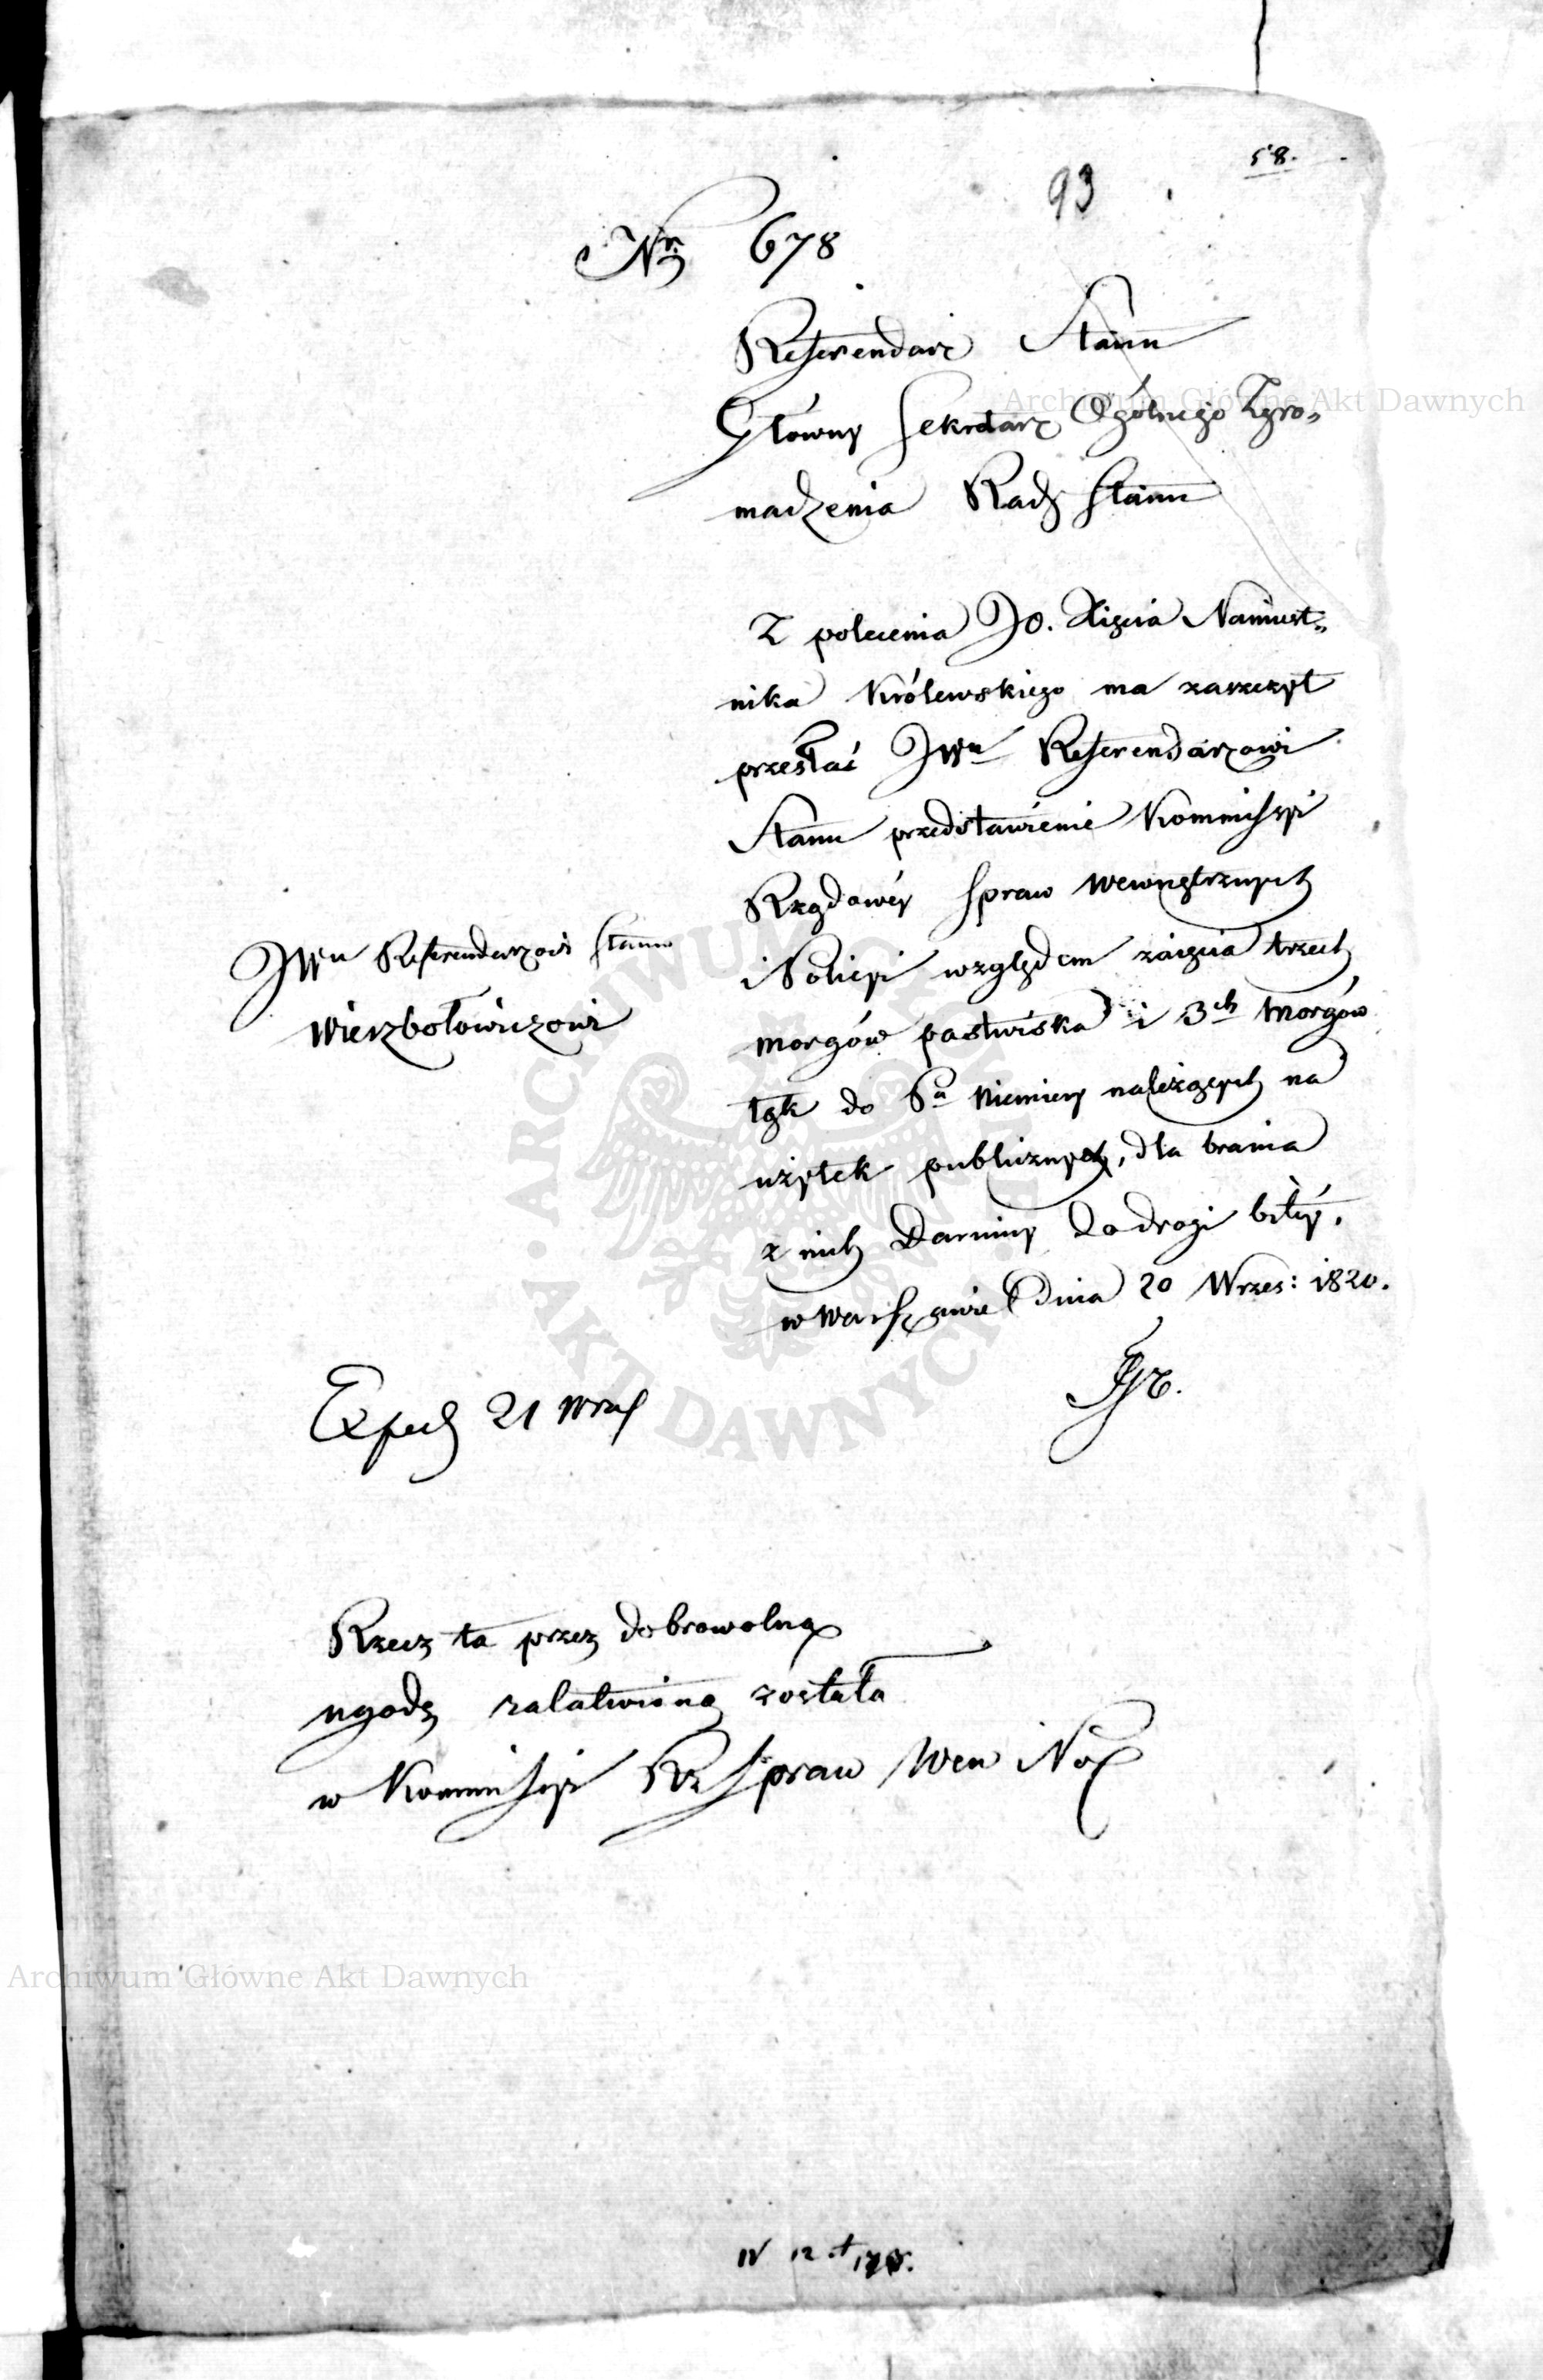 58.
93
Nr 678
Referendarz Stanu
Główny Sekretarz Ogólnego Zgro„
madzenia Rady Stanu
Z polecenia JO. Xięcia Namiest„
nika Królewskiego ma zaszczyt
przesłać JWu Referendarzowi
Stanu przedstawienie Kommissyi
Rządowéy Spraw Wewnętrznych
i Policyi względem zaięcia trzech
morgów pastwiska i 3ch morgów
łąk do Pa Niemiery należących na
użytek publiczny, dla brania
z nich Darniny do drogi bitéy.
w Warszawie dnia 20 Wrześ: 1820.
JWu Referendarzowi Stanu
Wierzbołowiczowi
Exped 21 Wrześ
Rzecz ta przez dobrowolną
ugodę załatwioną została
w Kommissyi Rz Spraw Wew i Pol
Archiwum Główne Akt Dawnych
ARCHIWUM GŁÓWNE AKT DAWNYCH
Archiwum Główne Akt Dawnych